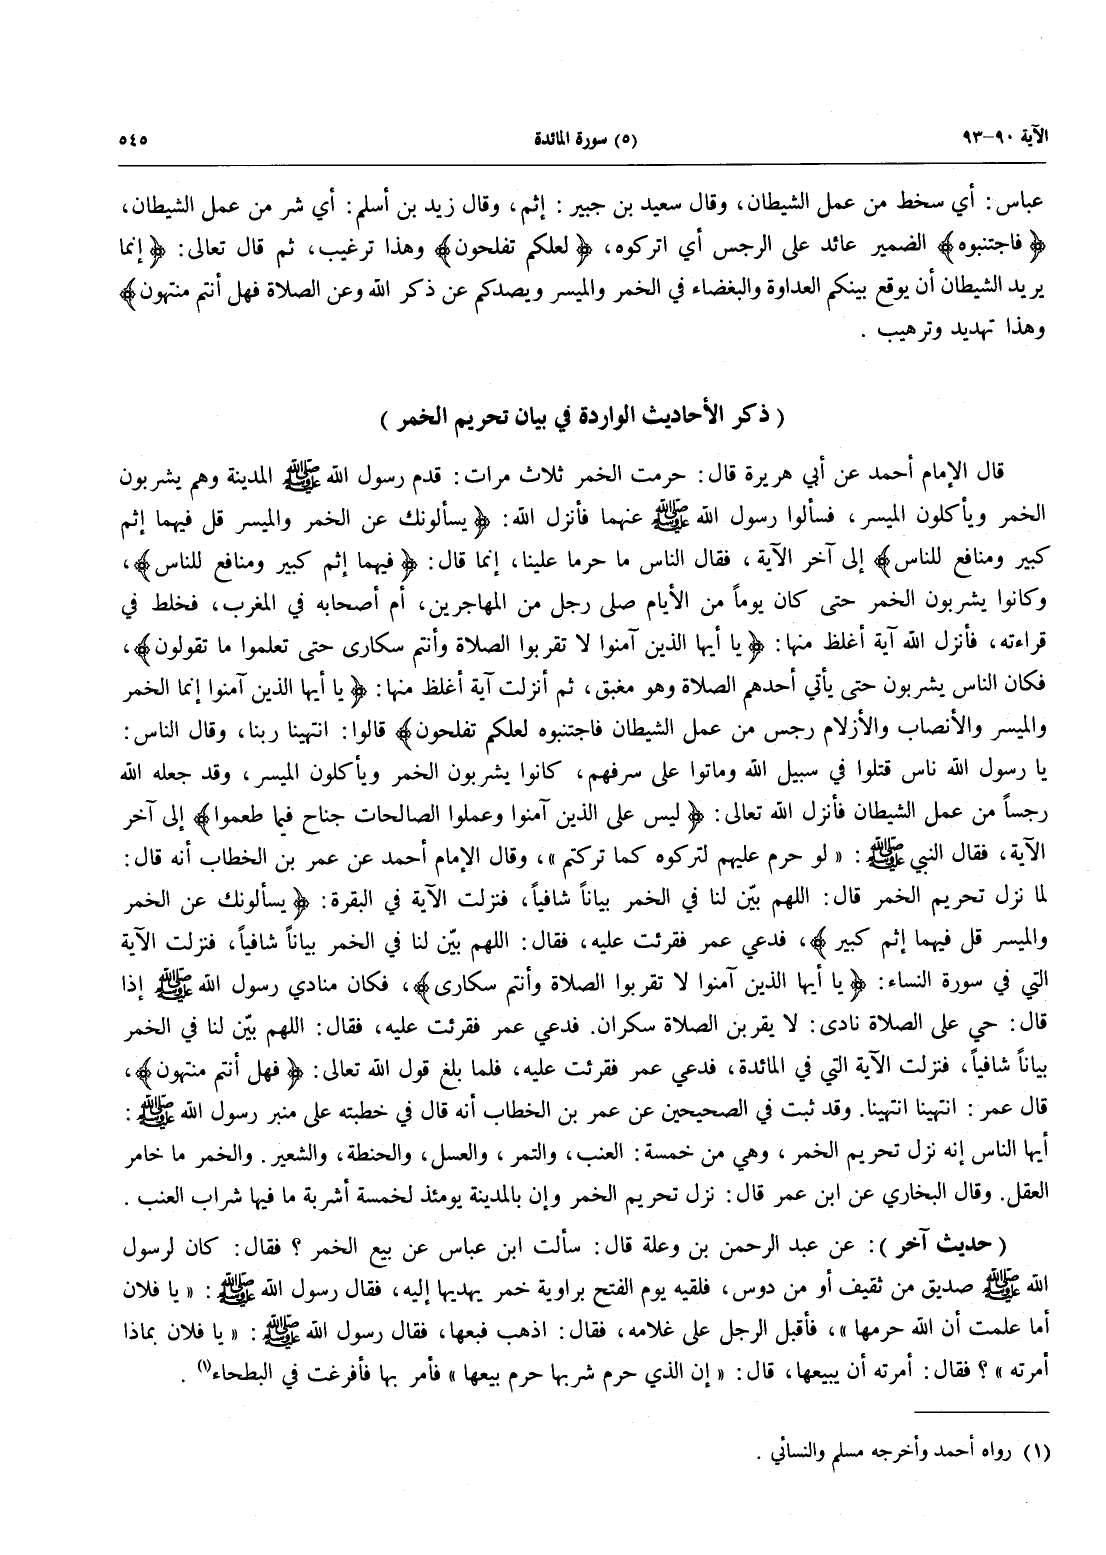 الآية ٩٠-٩٣ (٥) سورة المائدة ٥٤٥
عباس: أي سخط من عمل الشيطان، وقال سعيد بن جبير : إثم، وقال زيد بن أسلم: أي شر من عمل الشيطان،
﴿ فاجتنبوه﴾ الضمير عائد على الرجس أي اتركوه، ﴿ لعلكم تفلحون﴾ وهذا ترغيب، ثم قال تعالى: ﴿ إنما
يريد الشيطان أن يوقع بينكم العداوة والبغضاء في الخمر والميسر ويصدكم عن ذكر الله وعن الصلاة فهل أنتم منتهون﴾
وهذا تهديد وترهيب .
( ذكر الأحاديث الواردة في بيان تحريم الخمر )
قال الإمام أحمد عن أبي هريرة قال: حرمت الخمر ثلاث مرات: قدم رسول الله ﷺ المدينة وهم يشربون
الخمر ويأكلون الميسر، فسألوا رسول الله ﷺ عنهما فأنزل الله: ﴿ يسألونك عن الخمر والميسر قل فيهما إثم
كبير ومنافع للناس﴾ إلى آخر الآية، فقال الناس ما حرما علينا، إنما قال: ﴿ فيهما إثم كبير ومنافع للناس﴾،
وكانوا يشربون الخمر حتى كان يوماً من الأيام صلى رجل من المهاجرين، أم أصحابه في المغرب، فخلط في
قراءته، فأنزل الله آية أغلظ منها: ﴿ يا أيها الذين آمنوا لا تقربوا الصلاة وأنتم سكارى حتى تعلموا ما تقولون﴾،
فكان الناس يشربون حتى يأتي أحدهم الصلاة وهو مغبق، ثم أنزلت آية أغلظ منها: ﴿ يا أيها الذين آمنوا إنما الخمر
والميسر والأنصاب والأزلام رجس من عمل الشيطان فاجتنبوه لعلكم تفلحون﴾ قالوا: انتهينا ربنا، وقال الناس:
يا رسول الله ناس قتلوا في سبيل الله وماتوا على سرفهم، كانوا يشربون الخمر ويأكلون الميسر، وقد جعله الله
رجساً من عمل الشيطان فأنزل الله تعالى: ﴿ ليس على الذين آمنوا وعملوا الصالحات جناح فيما طعموا﴾ إلى آخر
الآية، فقال النبي ﷺ : « لو حرم عليهم لتركوه كما تركتم »، وقال الإمام أحمد عن عمر بن الخطاب أنه قال:
لما نزل تحريم الخمر قال: اللهم بيّن لنا في الخمر بياناً شافياً، فنزلت الآية في البقرة: ﴿ يسألونك عن الخمر
والميسر قل فيهما إثم كبير ﴾، فدعي عمر فقرئت عليه، فقال: اللهم بيّن لنا في الخمر بياناً شافياً، فنزلت الآية
التي في سورة النساء: ﴿ يا أيها الذين آمنوا لا تقربوا الصلاة وأنتم سكارى﴾، فكان منادي رسول الله ﷺ إذا
قال: حي على الصلاة نادى: لا يقربن الصلاة سكران. فدعي عمر فقرئت عليه، فقال: اللهم بيّن لنا في الخمر
بياناً شافياً، فنزلت الآية التي في المائدة، فدعي عمر فقرئت عليه، فلما بلغ قول الله تعالى: ﴿ فهل أنتم منتهون﴾،
قال عمر: انتهينا انتهينا. وقد ثبت في الصحيحين عن عمر بن الخطاب أنه قال في خطبته على منبر رسول الله ﷺ :
أيها الناس إنه نزل تحريم الخمر، وهي من خمسة: العنب، والتمر، والعسل، والحنطة، والشعير. والخمر ما خامر
العقل. وقال البخاري عن ابن عمر قال: نزل تحريم الخمر وإن بالمدينة يومئذ لخمسة أشربة ما فيها شراب العنب .
( حديث آخر ): عن عبد الرحمن بن وعلة قال: سألت ابن عباس عن بيع الخمر ؟ فقال: كان لرسول
الله ﷺ صديق من ثقيف أو من دوس، فلقيه يوم الفتح براوية خمر يهديها إليه، فقال رسول الله ﷺ : « يا فلان
أما علمت أن الله حرمها »، فأقبل الرجل على غلامه، فقال: اذهب فبعها، فقال رسول الله ﷺ : « يا فلان بماذا
أمرته » ؟ فقال: أمرته أن يبيعها، قال: « إن الذي حرم شربها حرم بيعها » فأمر بها فأفرغت في البطحاء(١) .
(١) رواه أحمد وأخرجه مسلم والنسائي .